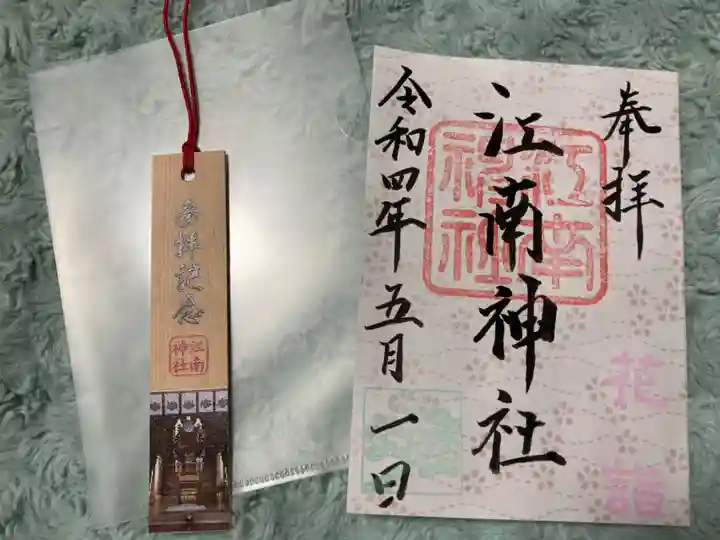 参拝記念
江南
神社
奉拝
江南神社
江南
神社
令和四年五月一日
花詣